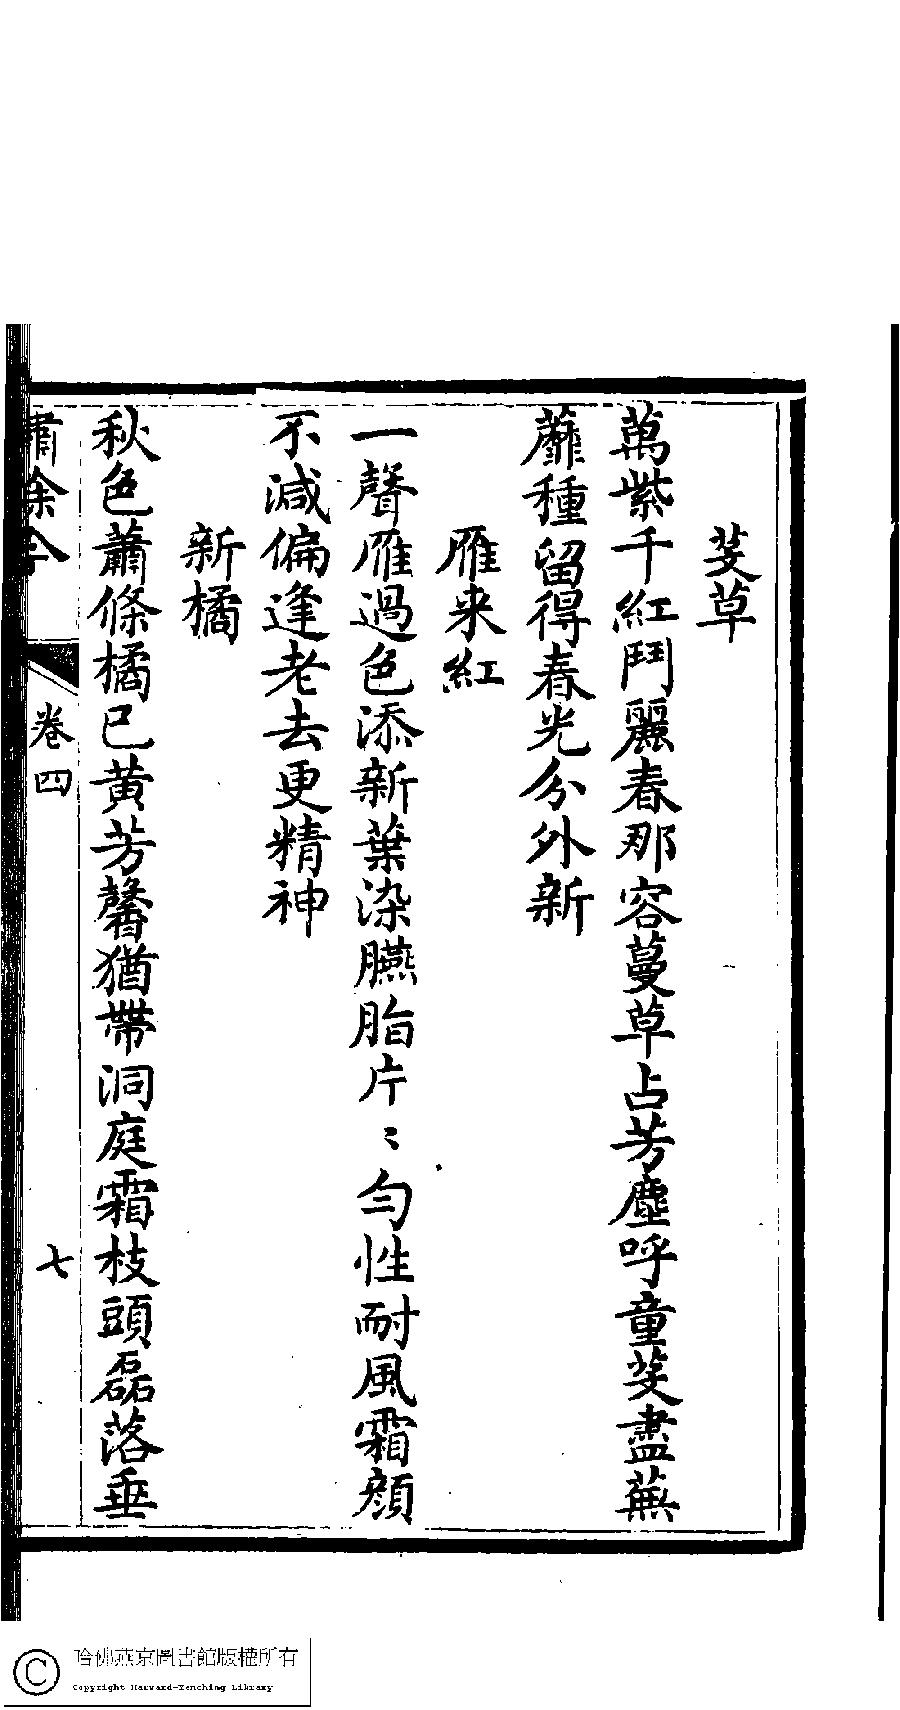 芟草
萬紫千紅鬥麗春那容蔓草占芳塵呼童芟盡蕪
蘼種留得春光分外新
雁来紅
一聲雁過色添新葉染臙脂片〻勻性耐風霜顔
不減偏逢老去更精神
新橘
秋色蕭條橘已黄芳馨猶帶洞庭霜枝頭磊落垂
卷四
七
哈佛燕京圖書館版權所有
Copyright Harvard-Yenching Library